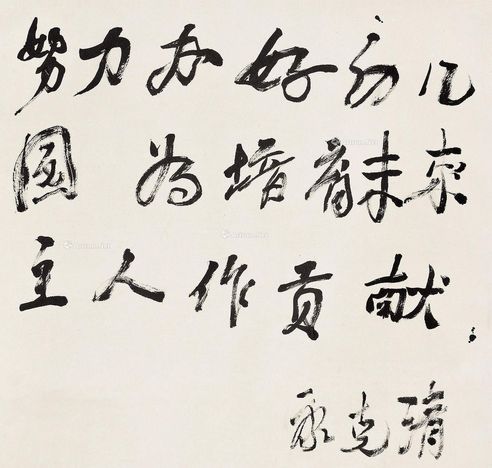 努力办好幼儿
園 为培育未来
主人作贡献。
康克清